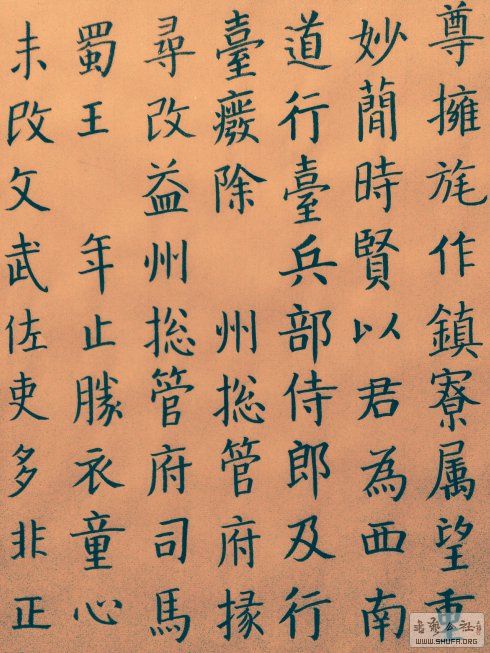 尊擁旄作鎮寮属望重
妙簡時賢以君為西南
道行臺兵部侍郎及行
臺癈除 州揔管府掾
尋改益州揔管府司馬
蜀王 年止勝衣童心
未改文武佐吏多非正
WWW.SHUFA.ORG